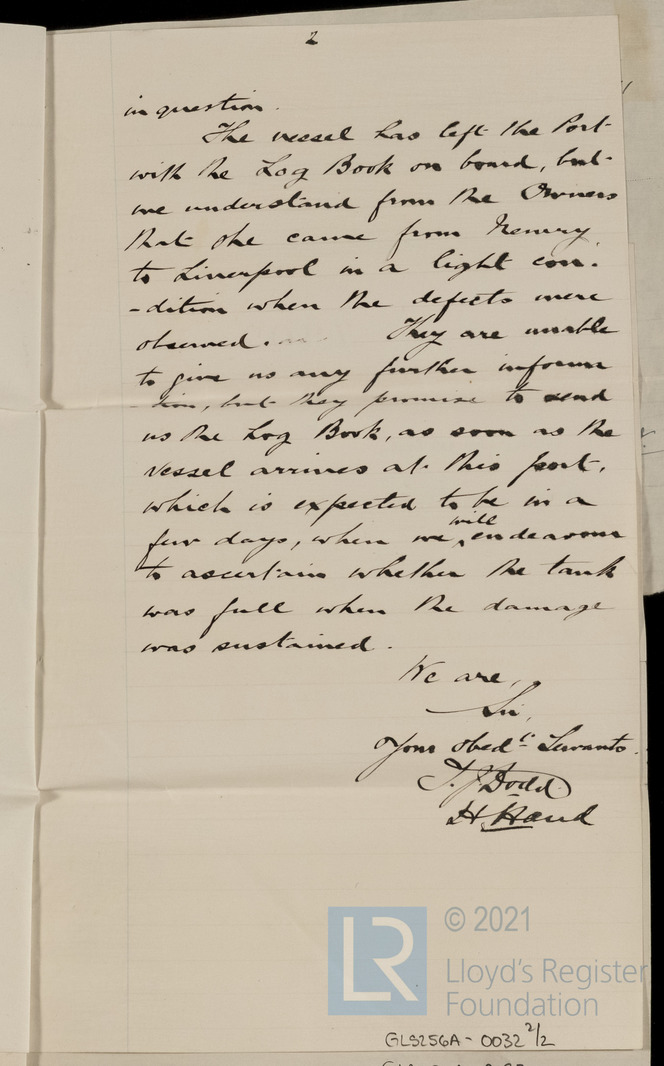 2
in question.
The vessel has left the Port
with the Log Book on board, but
we understand from the Owners
that she came from Newry
to Liverpool in a light con-
-dition when the defects were
observed. They are unable
to give us any further informa
-tion, but they promise to send
us the Log Book, as soon as the
vessel arrives at this port,
which is expected to be in a
few days, when we will endeavour
to ascertain whether the tank
was full when the damage
was sustained.
We are,
Sir,
Your obedt Servants.
T. J. Dodd
H. Hand
LR
© 2021
Lloyd's Register
Foundation
GLS256A - 0032 2/2